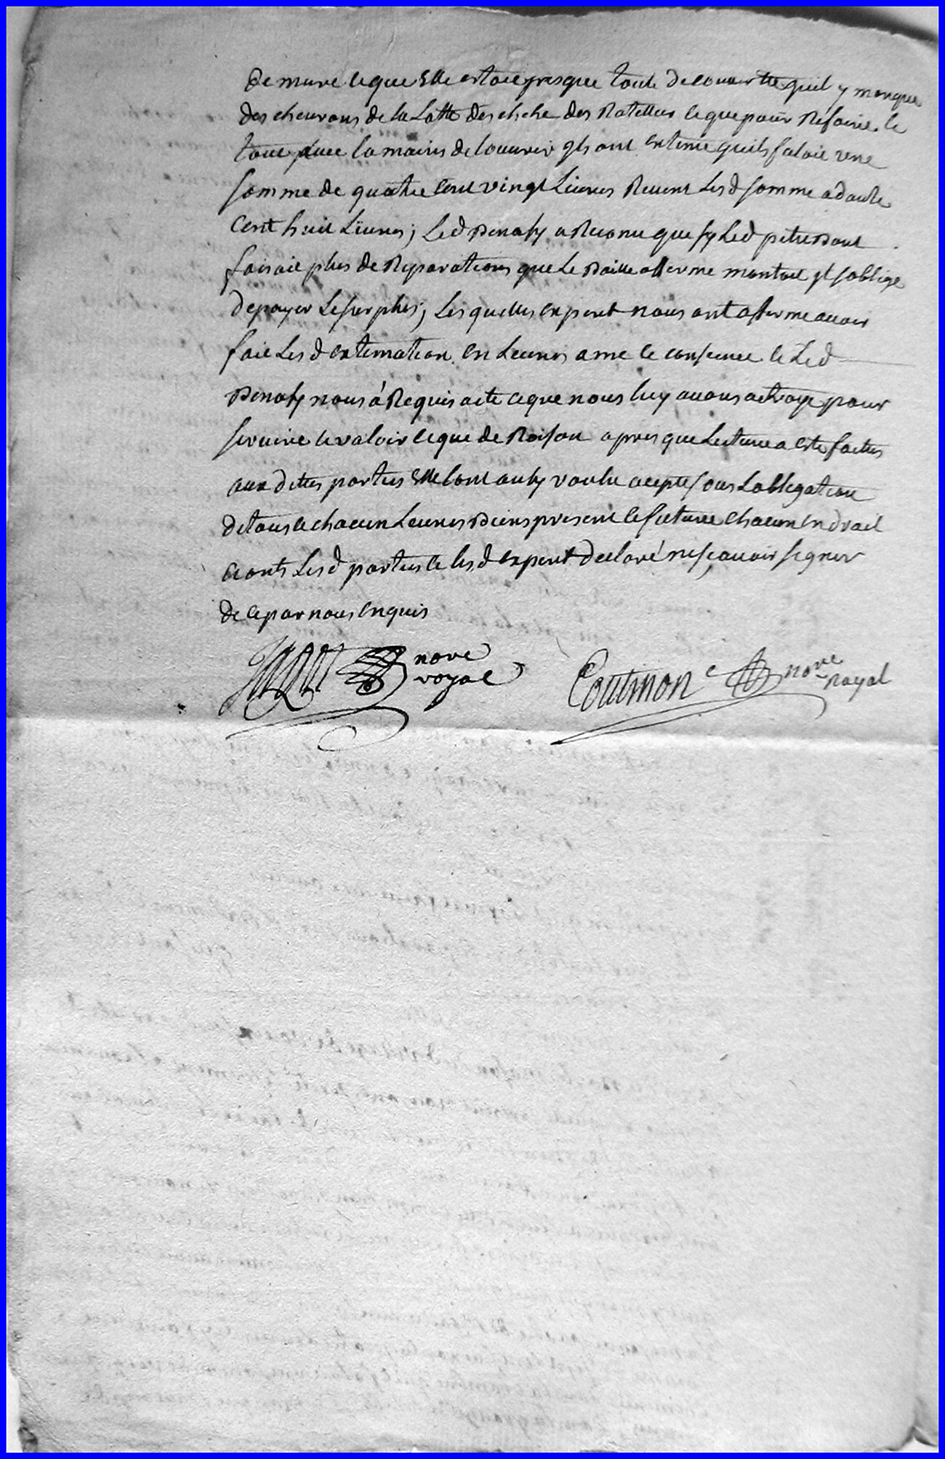 de mure et que Elle estoit presque toute decouvertte quil y manque
des cheurons de la Latte des cloche des Ratelliers et que pour Refaire le
tout avec la mains de louurier qls ont extimé quils faloit vne
somme de quatre cent vingt Liures Reuent Lesd somme a
cent huit Liures; Led Benassy a Reconu que sy Led petit
faisoit plus de Reparations que Le Baille afferme montoit yl soblige
de payer Le surplus; Les quelles expert nous ont afferme auoir
fait Lesd extimation en Leurs ame et consience et Led
Benassy nous á Requis acte et que nous luy auons actroyé pour
seruire et valoir et que de Raison apres que Lecture a esté faitte
aux dittes parties Elle lont aussy voulu acepté sous Lobligation
de tous et chacun Leures Biens present et future chacun en droit
et onts Lesd parties et lesd expert declaré ne scauoir signer
de ce par nous enquis
nore
royal
Coutinon nore
royal